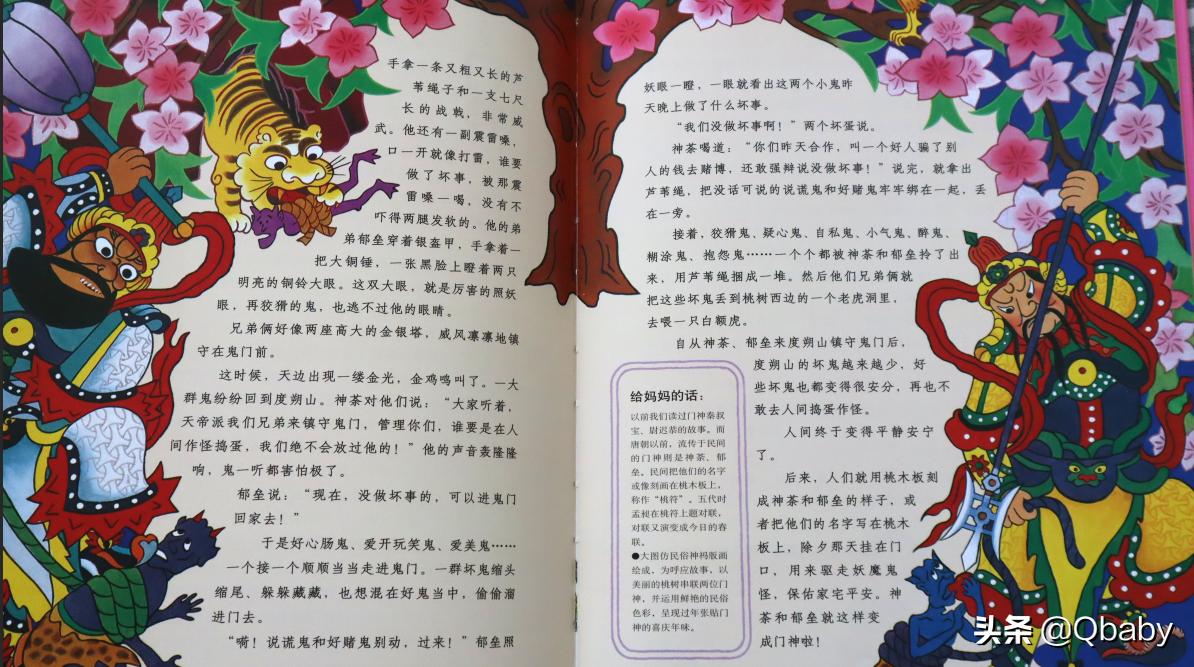 手拿一条又粗又长的芦
苇绳子和一支七尺
长的战戟，非常威
武。他还有一副震雷嗓，
口一开就像打雷，谁要
做了坏事，被那震
雷嗓一喝，没有不
吓得两腿发软的。他的弟
弟郁垒穿着银盔甲，手拿着一
把大铜锤，一张黑脸上瞪着两只
明亮的铜铃大眼。这双大眼，就是厉害的照妖
眼，再狡猾的鬼，也逃不过他的眼睛。
兄弟俩好像两座高大的金银塔，威风凛凛地镇
守在鬼门前。
这时候，天边出现一缕金光，金鸡鸣叫了。一大
群鬼纷纷回到度朔山。神荼对他们说：“大家听着，
天帝派我们兄弟来镇守鬼门，管理你们，谁要是在人
间作怪捣蛋，我们绝不会放过他的！”他的声音轰隆隆
响，鬼一听都害怕极了。
郁垒说：“现在，没做坏事的，可以进鬼门
回家去！”
于是好心肠鬼、爱开玩笑鬼、爱美鬼……
一个接一个顺顺当当走进鬼门。一群坏鬼缩头
缩尾、躲躲藏藏，也想混在好鬼当中，偷偷溜
进门去。
“嗬！说谎鬼和好赌鬼别动，过来！”郁垒照
妖眼一瞪，一眼就看出这两个小鬼昨
天晚上做了什么坏事。
“我们没做坏事啊！”两个坏蛋说。
神荼喝道：“你们昨天合作，叫一个好人骗了别
人的钱去赌博，还敢强辩说没做坏事！”说完，就拿出
芦苇绳，把没话可说的说谎鬼和好赌鬼牢牢绑在一起，丢
在一旁。
接着，狡猾鬼、疑心鬼、自私鬼、小气鬼、醉鬼、
糊涂鬼、抱怨鬼……一个个都被神荼和郁垒拎了出
来，用芦苇绳捆成一堆。然后他们兄弟俩就
把这些坏鬼丢到桃树西边的一个老虎洞里，
去喂一只白额虎。
自从神荼、郁垒来度朔山镇守鬼门后，
度朔山的坏鬼越来越少，好
些坏鬼也都变得很安分，再也不
敢去人间捣蛋作怪。
人间终于变得平静安宁
了。
后来，人们就用桃木板刻
成神荼和郁垒的样子，或
者把他们的名字写在桃木
板上，除夕那天挂在门
口，用来驱走妖魔鬼
怪，保佑家宅平安。神
荼和郁垒就这样变
成门神啦！
给妈妈的话：
以前我们读过门神秦叔
宝、尉迟恭的故事。而
唐朝以前，流传于民间
的门神则是神荼、郁
垒。民间把他们的名字
或像刻画在桃木板上，
称作“桃符”。五代时
孟昶在桃符上题对联，
对联又演变成今日的春
联。
●大图仿民俗神祃版画
绘成，为呼应故事，以
美丽的桃树串联两位门
神，并运用鲜艳的民俗
色彩，呈现过年张贴门
神的喜庆年味。
头条 @Qbaby